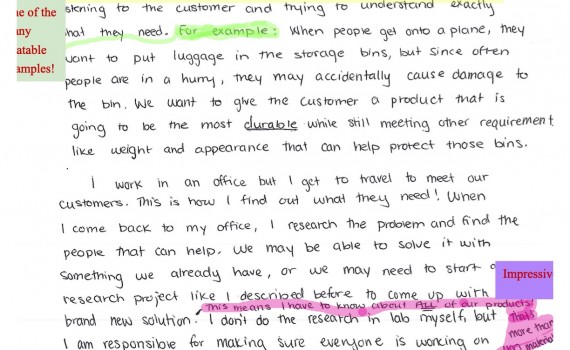 ne of the
ny
atable
amples!
stening to the customer and trying to understand exactly
hat they need. For example: When people get onto a plane, they
want to put luggage in the storage bins, but since often
people are in a hurry, they may accidentally cause damage to
the bin. We want to give the customer a product that is
going to be the most durable while still meeting other requirement
like weight and appearance that can help protect those bins.
I work in an office but I get to travel to meet our
customers. This is how I find out what they need! When
I come back to my office, I research the problem and find the
people that can help. We may be able to solve it with
something we already have, or we may need to start a
Impressiv
research project like I described before to come up with
This means I have to know about ALL of our products!
brand new solution. I don't do the research in lab myself, but
That's
more than
I am responsible for making sure everyone is working on